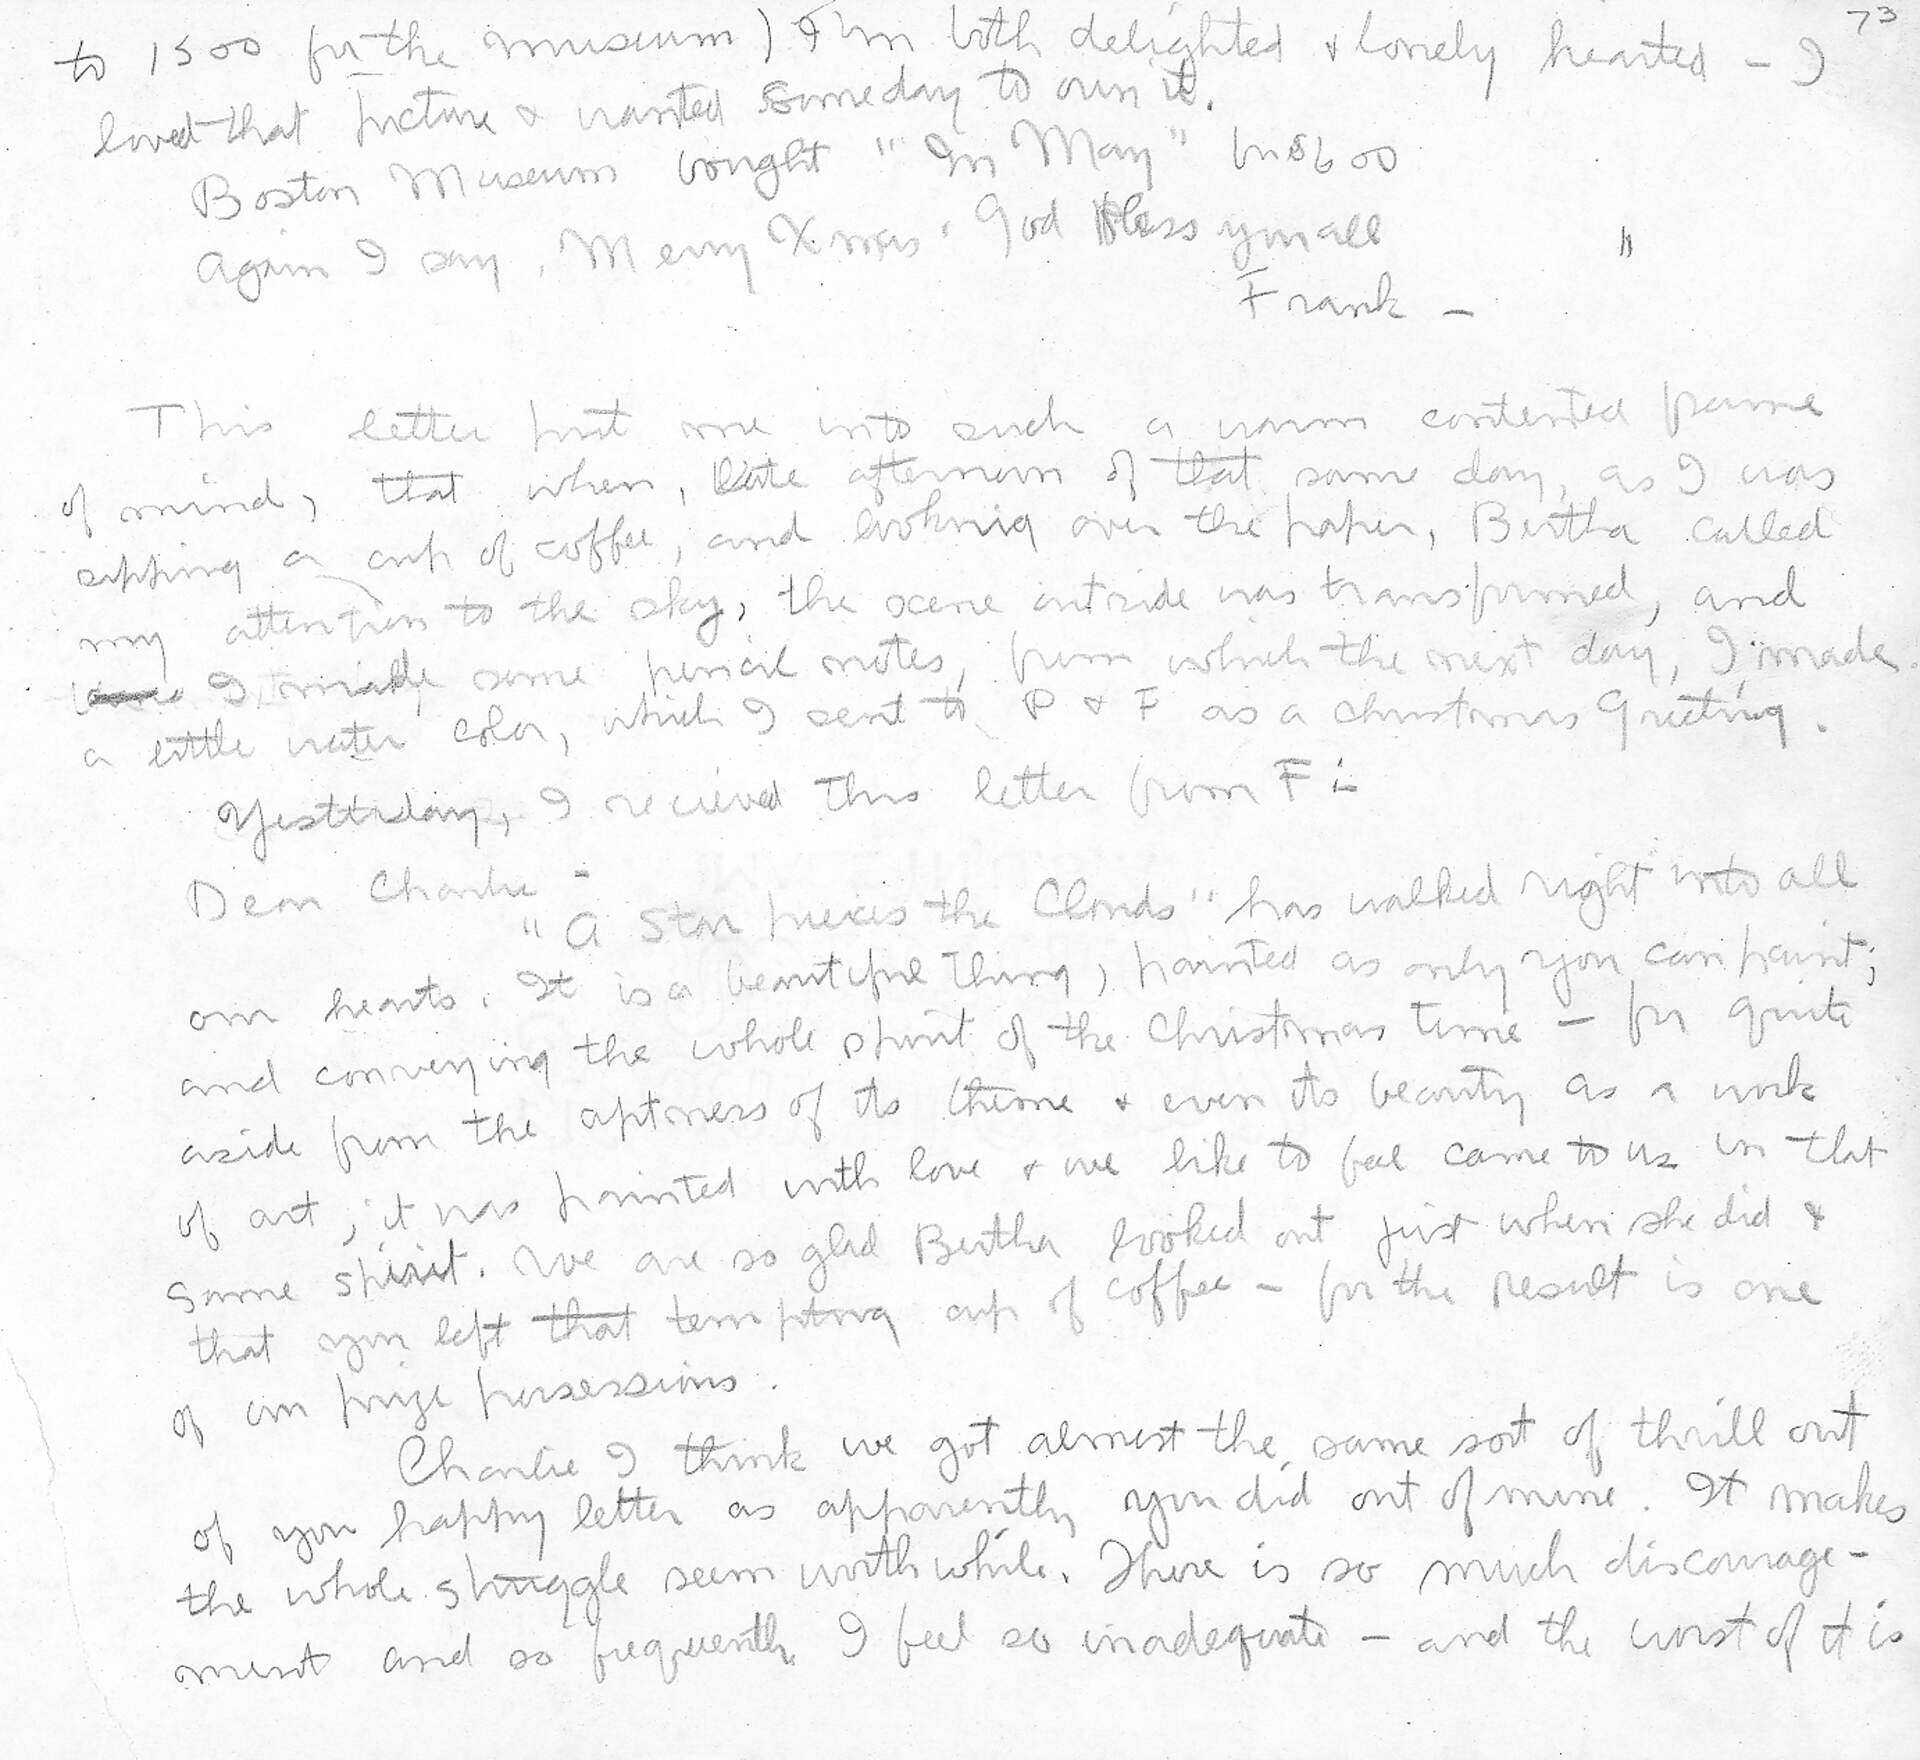 73
to 1500 for the museum) & I'm both delighted & lonely hearted - I
loved that picture & wanted someday to own it.
Boston Museum bought "In May" for $600
Again I say, Merry Xmas. God Bless you all "
Frank -
This letter put me into such a warm contented frame
of mind, that when, late afternoon of that same day, as I was
sipping a cup of coffee, and looking over the paper, Bertha called
my attention to the sky, the scene outside was transformed, and
I made some pencil notes, from which the next day, I made
a little water color, which I sent to P & F as a Christmas Greeting.
Yesterday, I recieved this letter from F:-
Dear Charlie -
"A Star pierces the Clouds" has walked right into all
our hearts. It is a beautiful thing, painted as only you can paint;
and conveying the whole spirit of the Christmas time - for quite
aside from the aptness of its theme & even its beauty as a work
of art, it was painted with love & we like to feel came to us in that
same spirit. We are so glad Bertha looked out just when she did &
that you left that tempting cup of coffee - for the result is one
of our prize possessions.
Charlie I think we got almost the same sort of thrill out
of your happy letter as apparently you did out of mine. It makes
the whole struggle seem worth while. There is so much discourage-
ment and so frequently I feel so inadequate - and the worst of it is